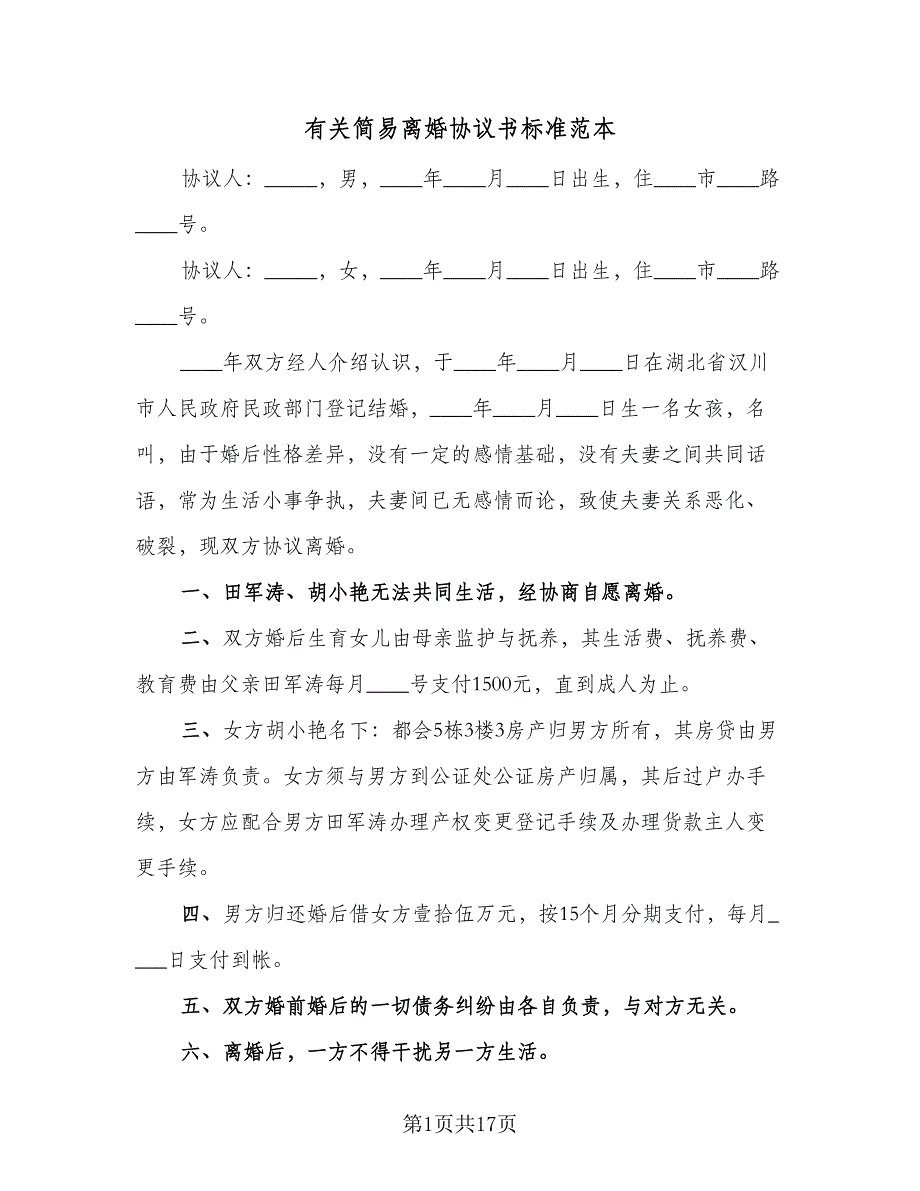 有关简易离婚协议书标准范本
协议人：_____，男，____年____月____日出生，住____市____路
____号。
协议人：_____，女，____年____月____日出生，住____市____路
____号。
____年双方经人介绍认识，于____年____月____日在湖北省汉川
市人民政府民政部门登记结婚，____年____月____日生一名女孩，名
叫，由于婚后性格差异，没有一定的感情基础，没有夫妻之间共同话
语，常为生活小事争执，夫妻间已无感情而论，致使夫妻关系恶化、
破裂，现双方协议离婚。
一、田军涛、胡小艳无法共同生活，经协商自愿离婚。
二、双方婚后生育女儿由母亲监护与抚养，其生活费、抚养费、
教育费由父亲田军涛每月____号支付1500元，直到成人为止。
三、女方胡小艳名下：都会5栋3楼3房产归男方所有，其房贷由男
方由军涛负责。女方须与男方到公证处公证房产归属，其后过户办手
续，女方应配合男方田军涛办理产权变更登记手续及办理货款主人变
更手续。
四、男方归还婚后借女方壹拾伍万元，按15个月分期支付，每月_
___日支付到帐。
五、双方婚前婚后的一切债务纠纷由各自负责，与对方无关。
六、离婚后，一方不得干扰另一方生活。
第1页共17页